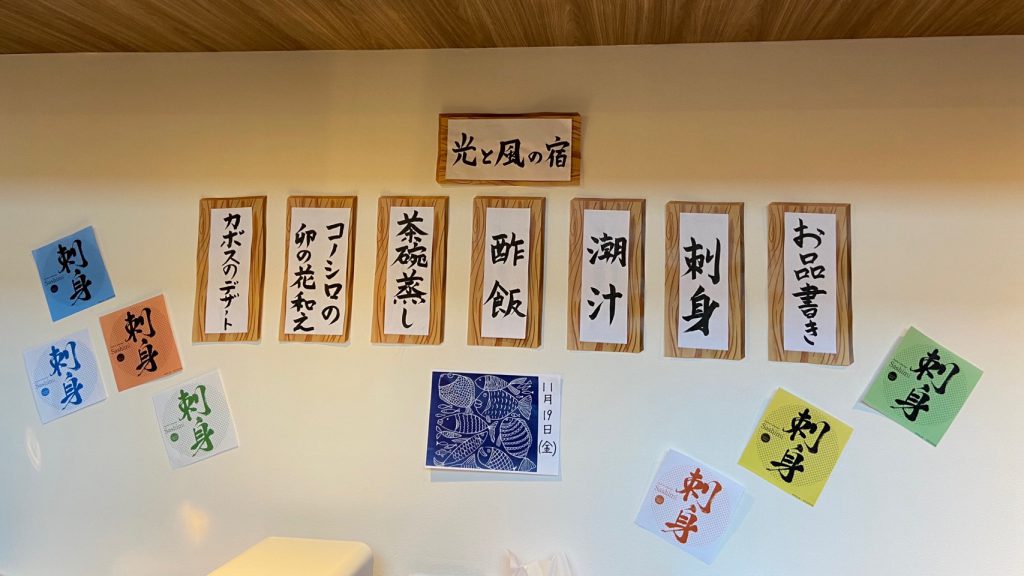 光と風の宿
お品書き
刺身
潮汁
酢飯
茶碗蒸し
コノシロの
卯の花和え
カボスのデザート
11月19日(金)
刺身
刺身
Sashimi
刺身
Sashimi
刺身
Sashimi
刺身
Sashimi
刺身
Sashimi
刺身